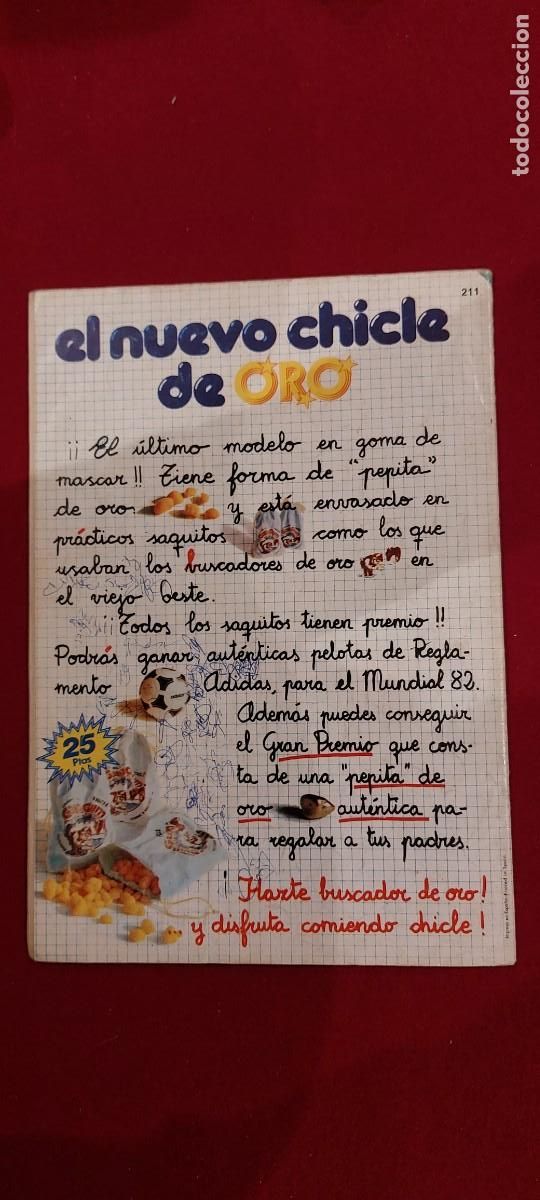 todocoleccion
211
el nuevo chicle
de ORO
¡¡ El último modelo en goma de
mascar!! Tiene forma de "pepita"
de oro y está envasado en
prácticos saquitos como los que
usaban los buscadores de oro en
el viejo Oeste.
¡¡Todos los saquitos tienen premio!!
Podrás ganar auténticas pelotas de Regla-
mento Adidas, para el Mundial 82.
Además puedes conseguir
el Gran Premio que cons-
ta de una "pepita" de
oro auténtica pa-
ra regalar a tus padres.
25
Ptas
¡Hazte buscador de oro!
y disfruta comiendo chicle!